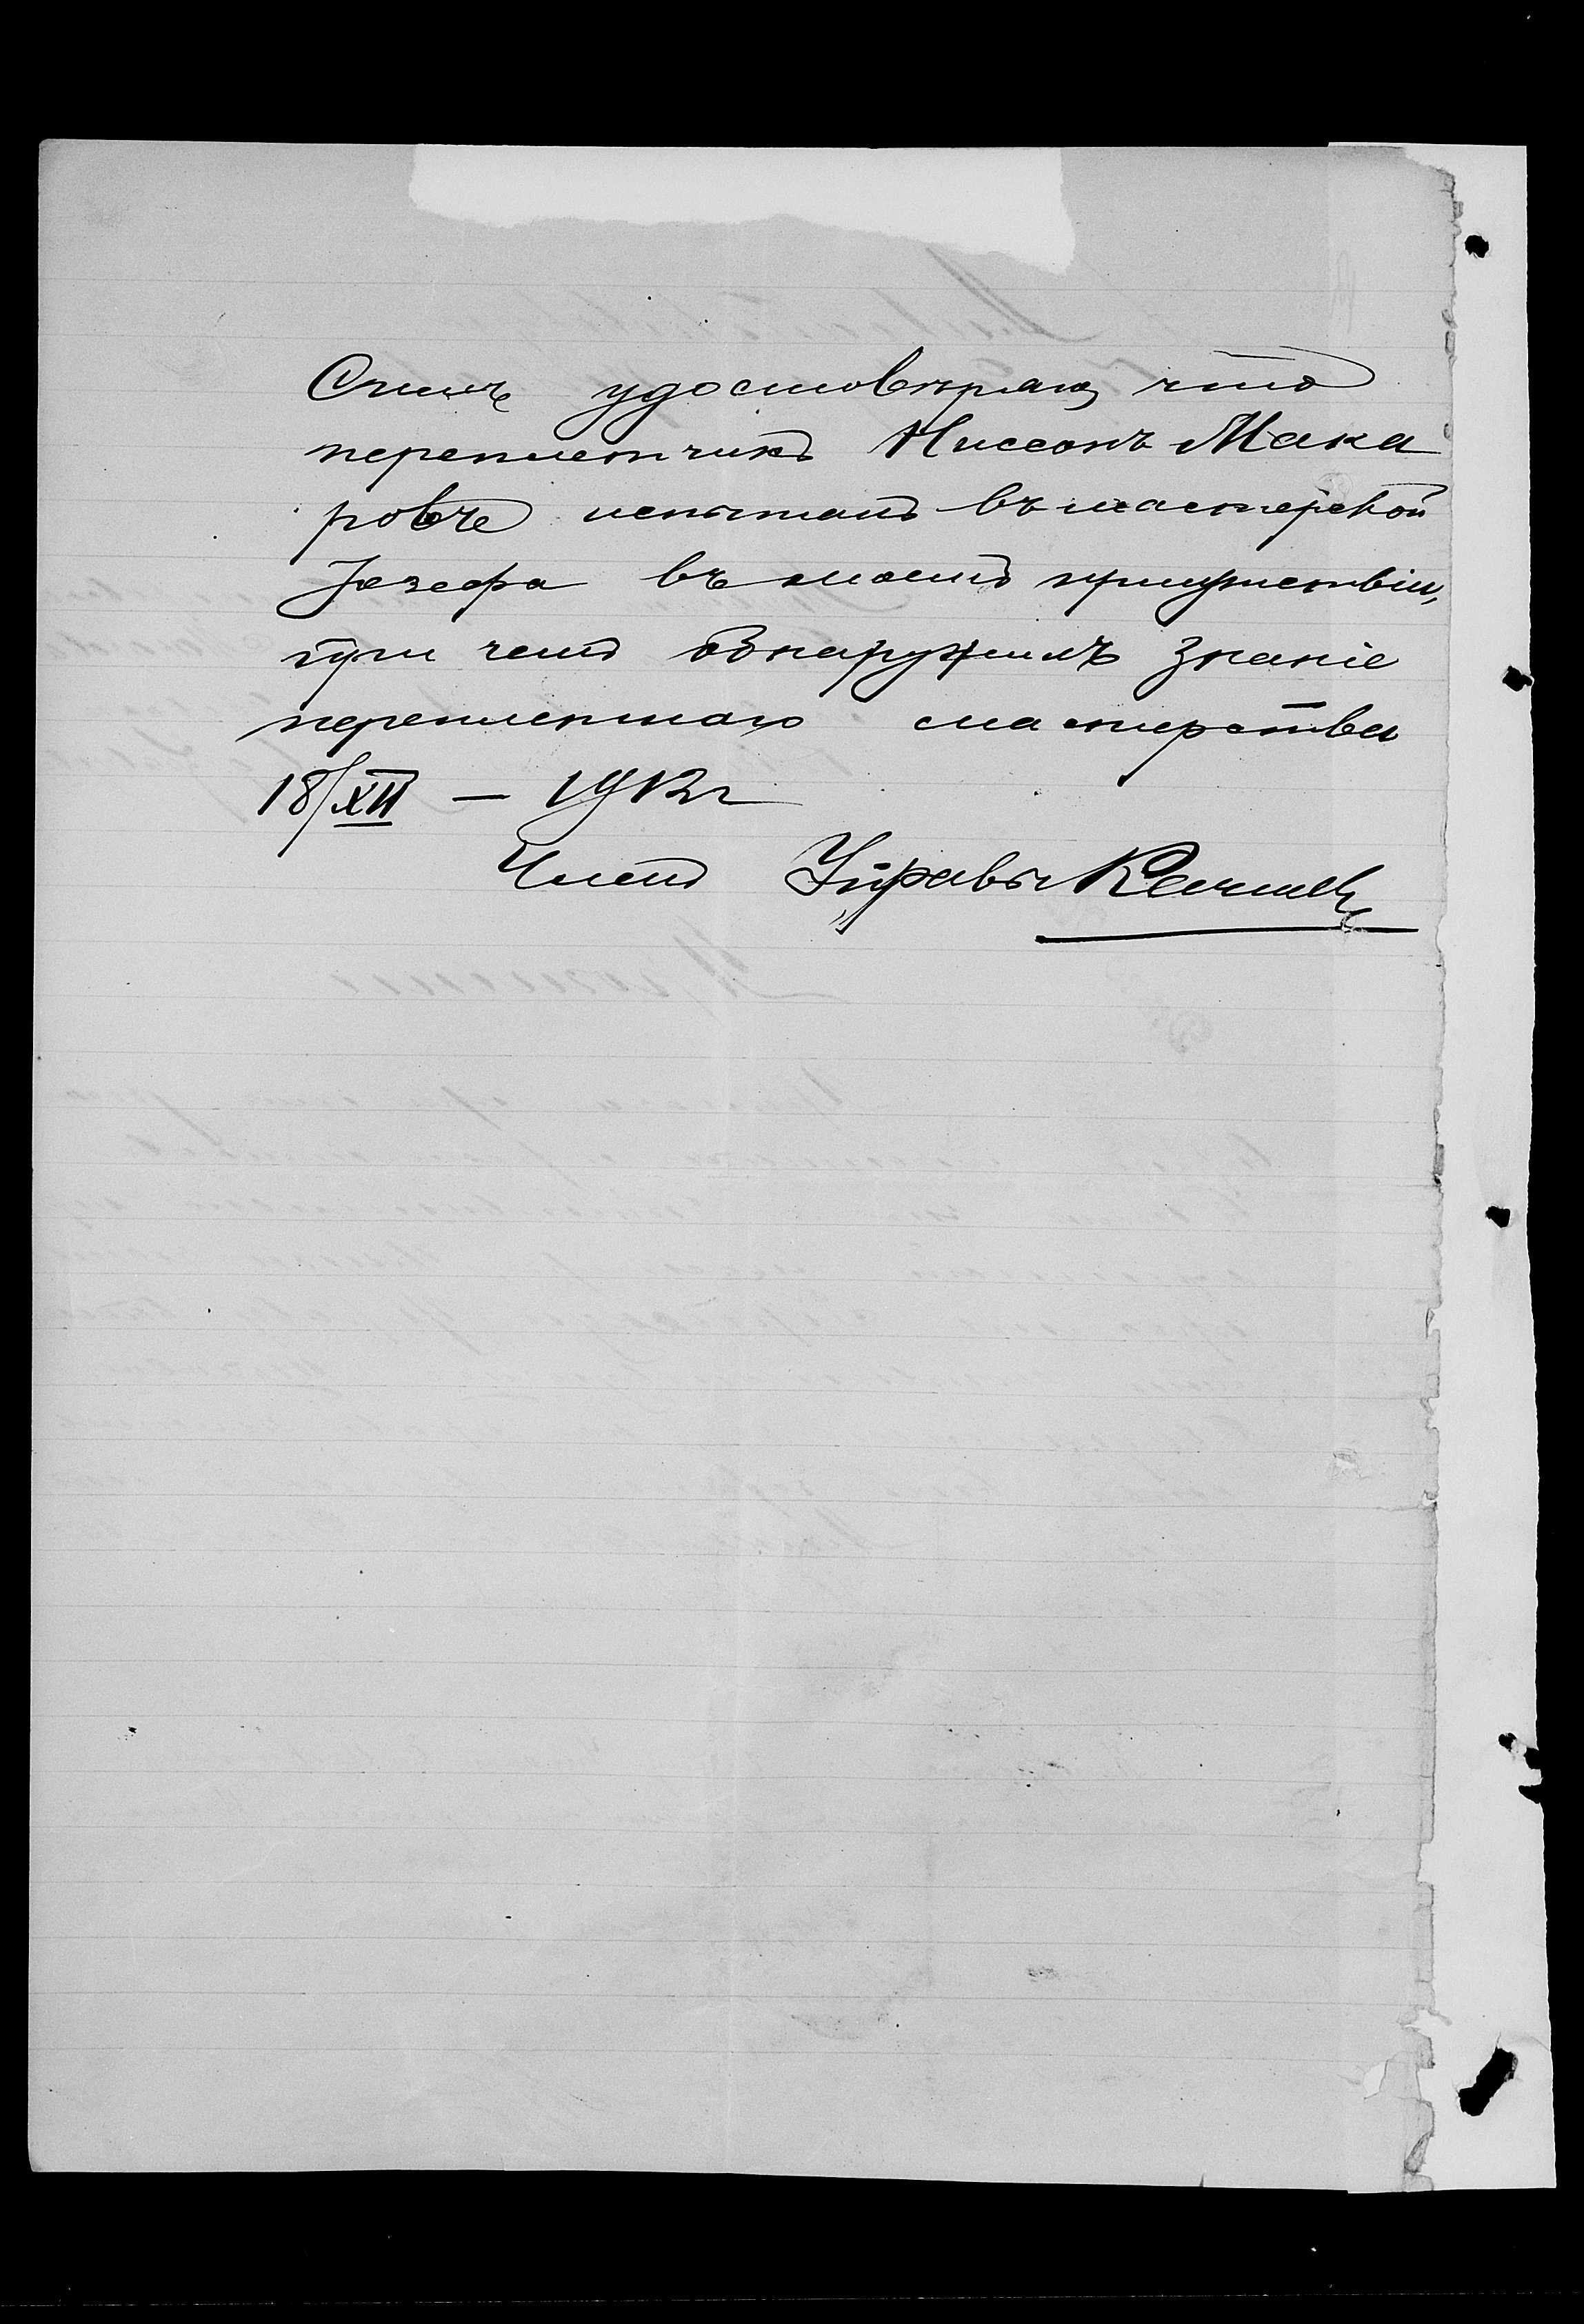 Симъ удостовѣряю, что
переплетчикъ Ниссонъ Мака
ровъ испытанъ въ мастерской
Іозефа въ моемъ присутствіи,
при чемъ обнаружилъ знаніе
переплетнаго мастерства
18/XII — 1912 г
Членъ Управы